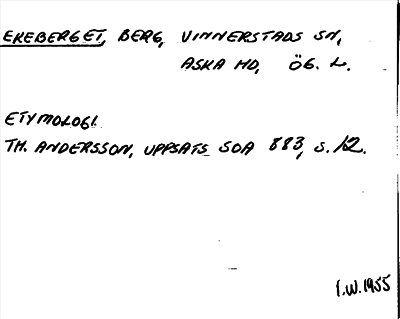 EKEBERGET, BERG, VINNERSTADS SN,
ASKA HD, ÖG. L.
ETYMOLOGI.
TH. ANDERSSON, UPPSATS SOA 883, S. 12.
I.W. 1955